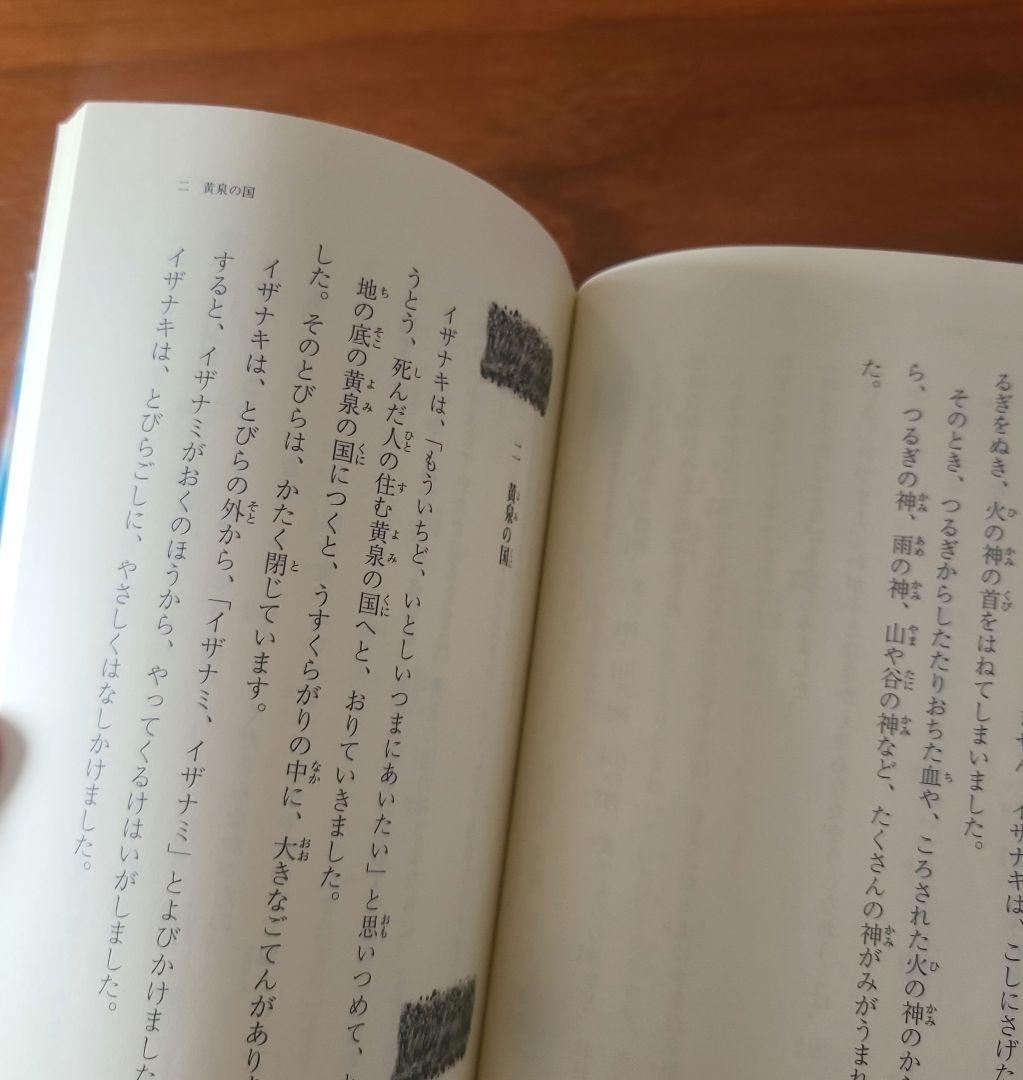 せん
イザナキは、こしにさげた
るぎをぬき、火の神の首をはねてしまいました。
そのとき、つるぎからしたたりおちた血や、ころされた火の神のか
ら、つるぎの神、雨の神、山や谷の神など、たくさんの神がみがうまれ
た。
二 黄泉の国
二 黄泉の国
イザナキは、「もういちど、いとしいつまにあいたい」と思いつめて、
うとう、死んだ人の住む黄泉の国へと、おりていきました。
地の底の黄泉の国につくと、うすくらがりの中に、大きなごてんがあり
した。そのとびらは、かたく閉じています。
イザナキは、とびらの外から、「イザナミ、イザナミ」とよびかけました
すると、イザナミがおくのほうから、やってくるけはいがしました。
イザナキは、とびらごしに、やさしくはなしかけました。